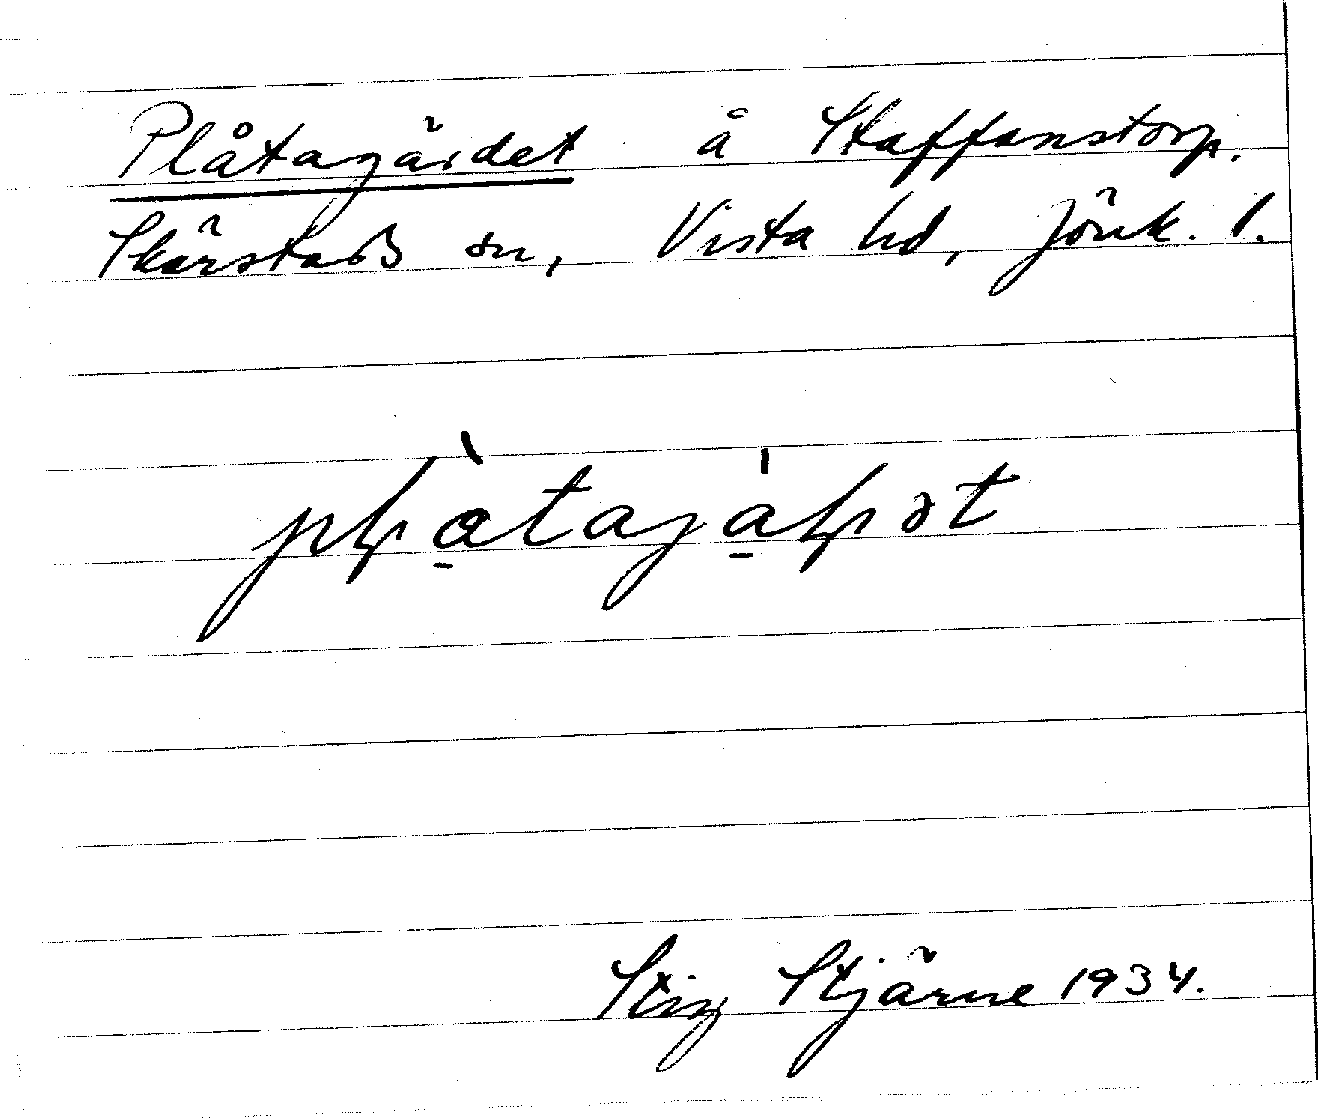 Plåtagärdet å Staffanstorp.
Skärstads sn, Vista hd, Jönk. l.
Stig Stjärne 1934.